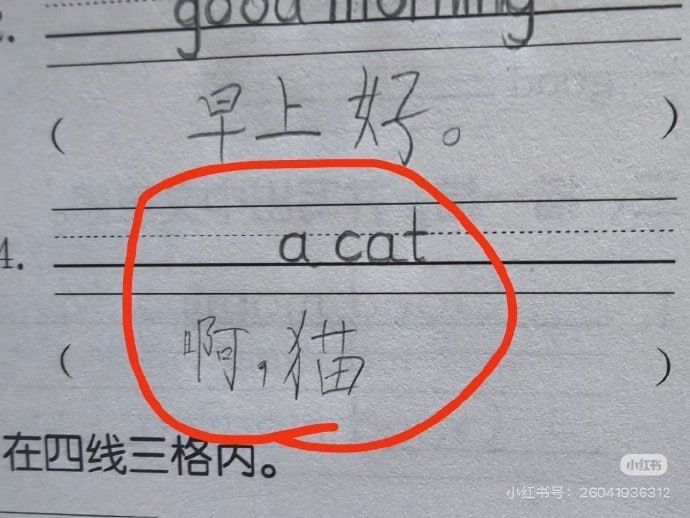 good morning
( 早上好。 )
4. a cat
( 啊,猫 )
在四线三格内。
小红书
小红书号：26041936312